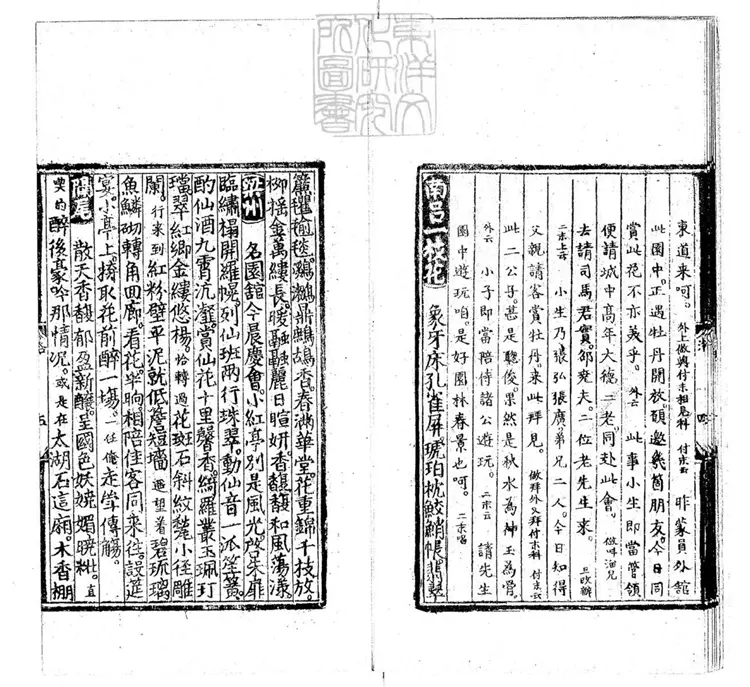 東洋文
化研究
所圖書
東道来呵。外上做與付末相見科 付末云 昨蒙員外舘
此園中。正遇牡丹開放。頋邀幾箇朋友。今日同
賞此花不亦美乎。外云 此事小生即當管領
便請城中高年大德二老。同赴此會。
去請司馬君實。邵堯夫。二位老先生来。
二末上云 小生乃張弘張廣弟兄二人。今日知得
父親請客賞牡丹。来此拜見。做拜外又拜付末科 付末云
此二公子。甚是聰俊。果然是秋水為神玉為骨
外云 小子即當陪侍諸公遊玩。二末云 請先生
園中遊玩咱。是好園林春景也呵。二末唱
南呂一枝花 象牙床孔雀屏琥珀枕鮫鮹帳翡翠
簾氍毹毯。鸂鶒鼎鷓鴣香。春滿華堂。花重錦千枝放。
柳搖金萬縷長。暖融融麗日暄妍。香馥馥和風蕩漾
梁州 名園舘今晨慶會。小紅亭別是風光。放朱扉
臨繡榻開羅幌。列仙班兩行珠翠。動仙音一派笙簧。
酌仙酒九霄沆瀣。賞仙花十里馨香。綺羅叢玉珮玎
璫翠紅鄉金縷悠楊。恰轉過花斑石斜紋甃小徑雕
闌。行来到紅粉壁平泥就低簷短墻 遥望着碧琉璃
魚鱗砌轉角囬廊。看花半晌。相陪住客同来往。設筵
宴。小亭上。擠取花前醉一塲。一任俺走斝傳觴。
隔尾 散天香馥郁盈新釀。呈國色妖嬈媚曉粧。直
喫的醉後豪吟那情况。或是在太湖石這厢。木香棚